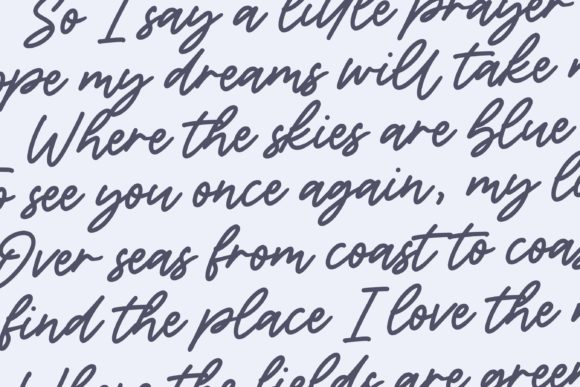 So I say a little prayer
ope my dreams will take m
Where the skies are blue
o see you once again, my lo
Over seas from coast to coas
find the place I love the m
Where the fields are green